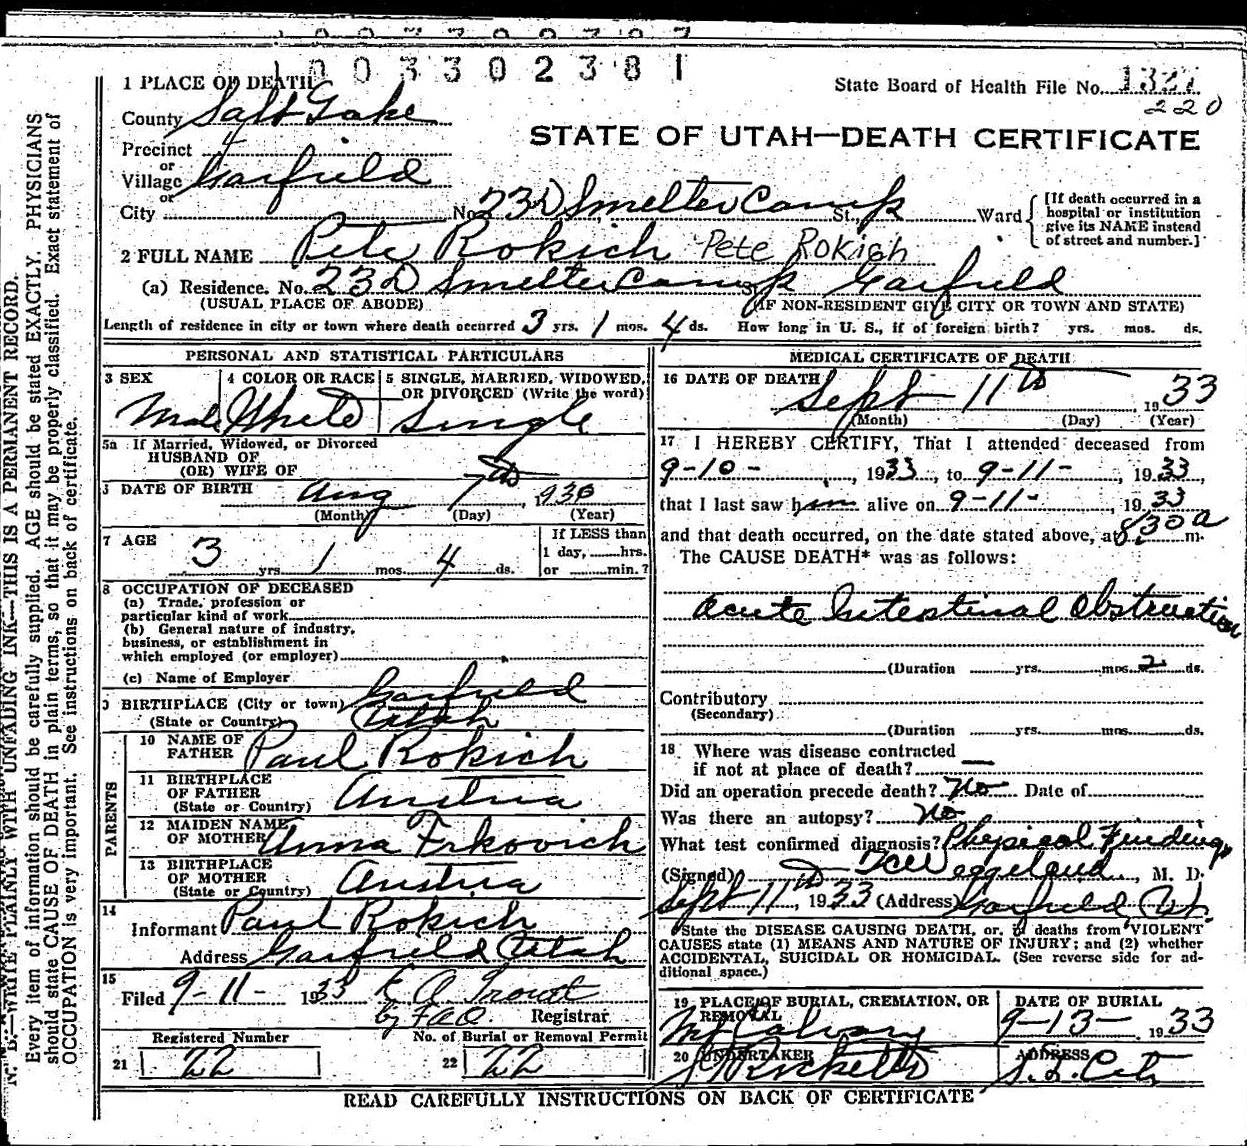 1003302381
1 PLACE OF DEATH
State Board of Health File No. 1327
220
County Salt Lake
STATE OF UTAH—DEATH CERTIFICATE
Precinct
or
Village Garfield
or
City No. 23D Smelter Camp St., Ward
[If death occurred in a hospital or institution give its NAME instead of street and number.]
2 FULL NAME Pete Rokich Pete Rokich
(a) Residence. No. 23D Smelter Camp Garfield
(USUAL PLACE OF ABODE) (IF NON-RESIDENT GIVE CITY OR TOWN AND STATE)
Length of residence in city or town where death occurred 3 yrs. 1 mos. 4 ds. How long in U. S., if of foreign birth? yrs. mos. ds.
PERSONAL AND STATISTICAL PARTICULARS
3 SEX
Male
4 COLOR OR RACE
White
5 SINGLE, MARRIED, WIDOWED, OR DIVORCED (Write the word)
Single
5a If Married, Widowed, or Divorced
HUSBAND OF
(OR) WIFE OF
DATE OF BIRTH Aug 7th, 1930
(Month) (Day) (Year)
7 AGE
3 yrs 1 mos. 4 ds.
If LESS than
1 day, hrs.
or min.?
8 OCCUPATION OF DECEASED
(a) Trade, profession or
particular kind of work
(b) General nature of industry,
business, or establishment in
which employed (or employer)
(c) Name of Employer
9 BIRTHPLACE (City or town) Garfield
(State or Country) Utah
PARENTS
10 NAME OF FATHER Paul Rokich
11 BIRTHPLACE OF FATHER (State or Country) Austria
12 MAIDEN NAME OF MOTHER Anna Erkovich
13 BIRTHPLACE OF MOTHER (State or Country) Austria
14
Informant Paul Rokich
Address Garfield Utah
15
Filed 9-11- 1933 E A Trowt
by FAO. Registrar
Registered Number No. of Burial or Removal Permit
21 22 22 22
MEDICAL CERTIFICATE OF DEATH
16 DATE OF DEATH Sept 11th 1933
(Month) (Day) (Year)
17 I HEREBY CERTIFY, That I attended deceased from
9-10-, 1933, to 9-11-, 1933,
that I last saw him alive on 9-11-, 1933
and that death occurred, on the date stated above, at 830 a m.
The CAUSE DEATH* was as follows:
Acute Intestinal Obstruction
(Duration yrs. mos. 2 ds.
Contributory
(Secondary)
(Duration yrs. mos. ds.
18 Where was disease contracted
if not at place of death? —
Did an operation precede death? No Date of
Was there an autopsy? No
What test confirmed diagnosis? Physical Findings
(Signed) Weggeland, M. D.
Sept 11th, 1933 (Address) Garfield, Ut.
*State the DISEASE CAUSING DEATH, or, if deaths from VIOLENT
CAUSES state (1) MEANS AND NATURE OF INJURY; and (2) whether
ACCIDENTAL, SUICIDAL OR HOMICIDAL. (See reverse side for ad-
ditional space.)
19 PLACE OF BURIAL, CREMATION, OR REMOVAL
Mt Calvary
DATE OF BURIAL
9-13-, 1933
20 UNDERTAKER
Ricketts
ADDRESS
S. L. City
READ CAREFULLY INSTRUCTIONS ON BACK OF CERTIFICATE
N. B.—WRITE PLAINLY WITH UNFADING INK—THIS IS A PERMANENT RECORD.
Every item of information should be carefully supplied. AGE should be stated EXACTLY. PHYSICIANS
should state CAUSE OF DEATH in plain terms, so that it may be properly classified. Exact statement of
OCCUPATION is very important. See instructions on back of certificate.